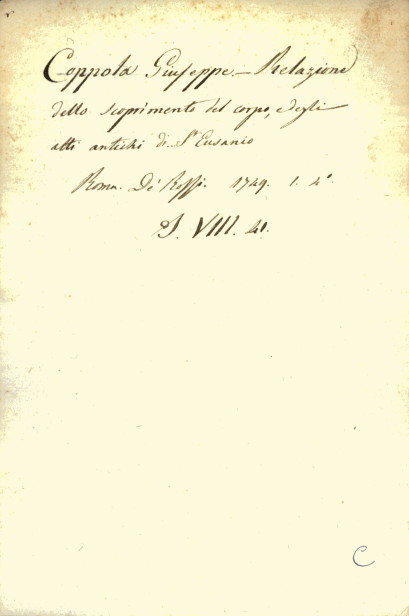 Coppola Giuseppe. — Relazione
dello scoprimento del corpo, e degli
atti antichi di St Eusanio
Roma. De' Rossi. 1749. 1. 4°.
S. VIII. 41.
C